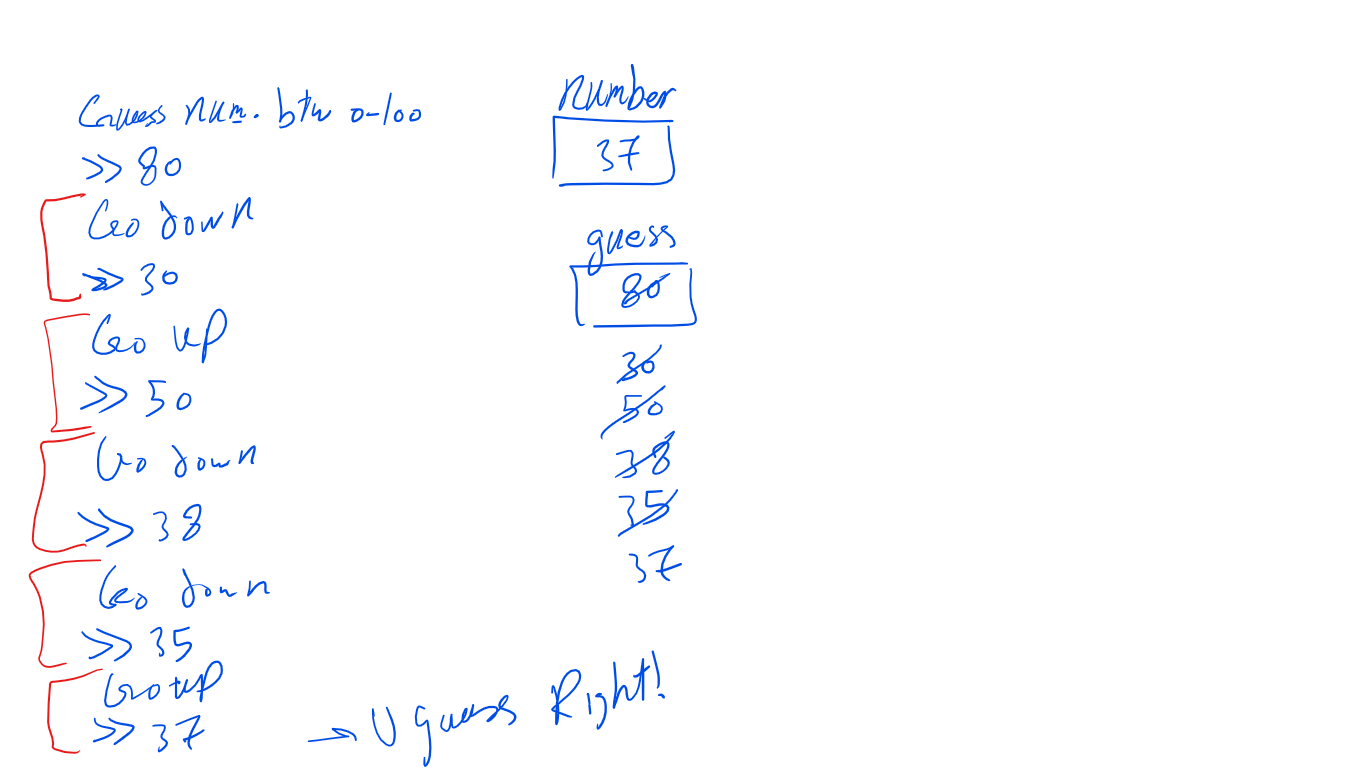 Guess num. btw 0-100
>> 80
Go down
>> 30
Go up
>> 50
Go down
>> 38
Go down
>> 35
Go up
>> 37
→ U guess Right!
number
37
guess
80
30
50
38
35
37